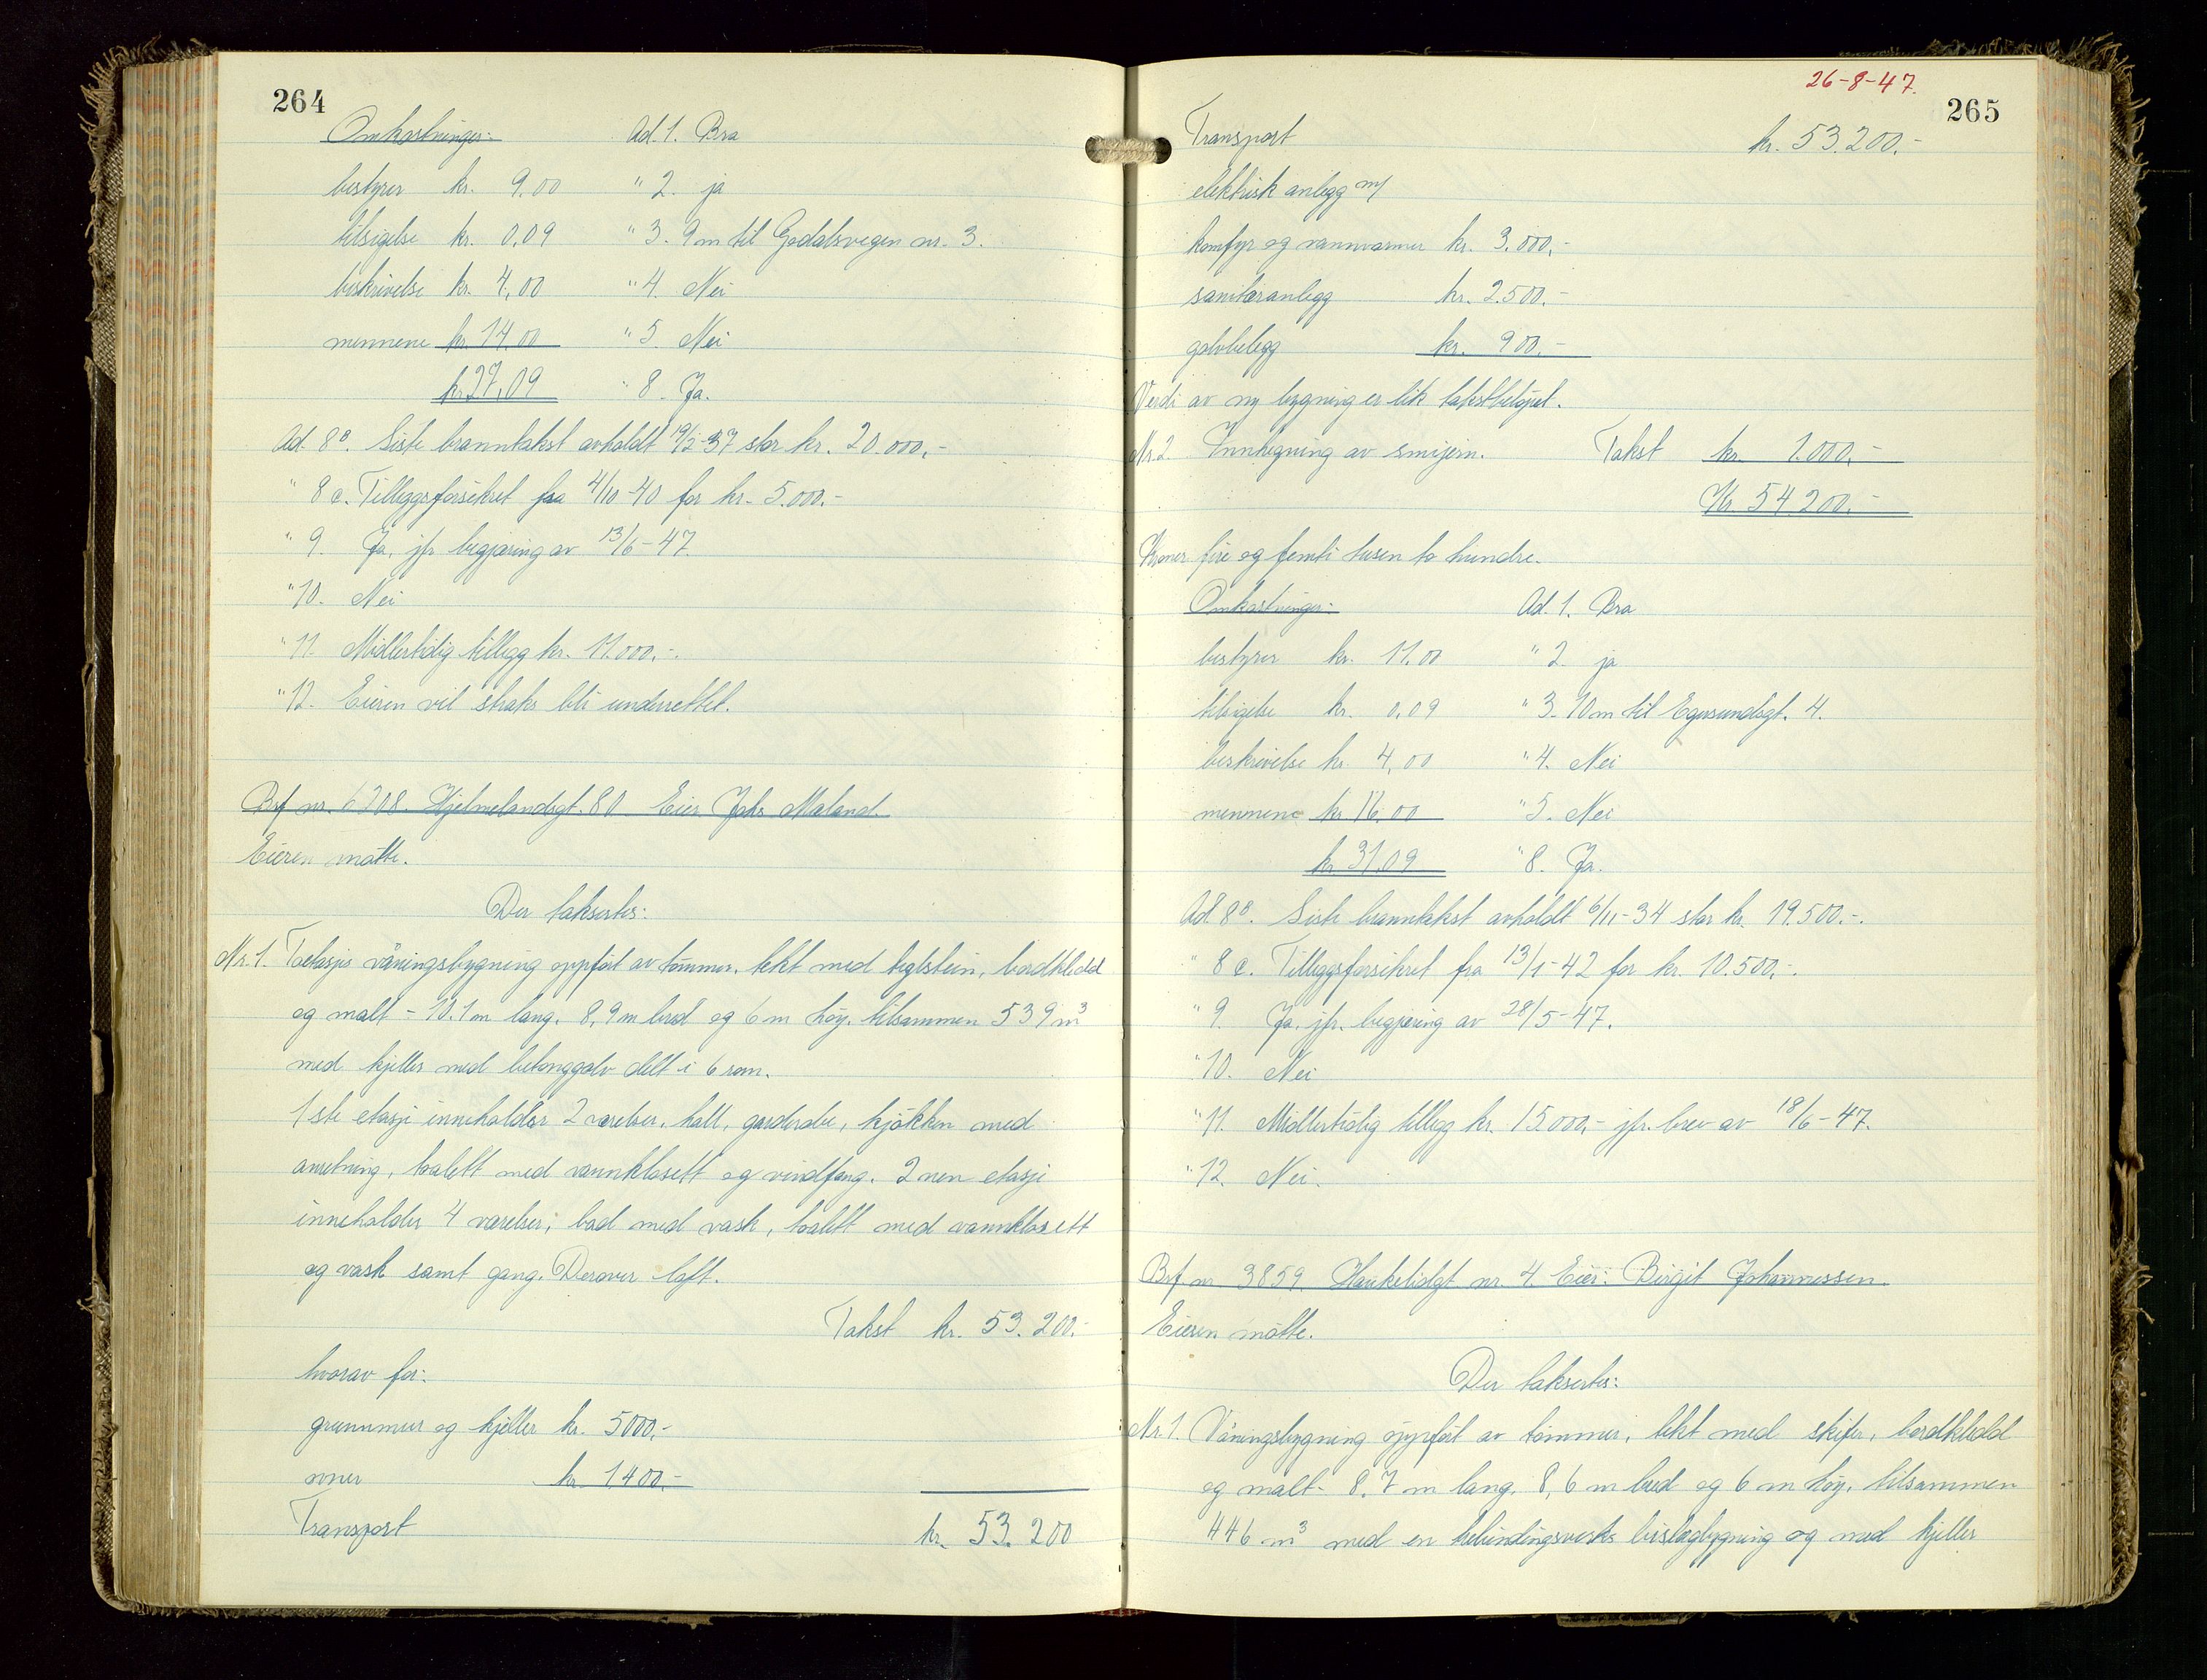 264
Omkostninger: Ad. 1. Bra
bestyrer kr. 9.00 " 2. ja
tilsigelse kr. 0,09 " 3. 9 m til Godalsvegen nr. 3.
beskrivelse kr. 4,00 " 4. Nei
mennene kr 14.00 " 5. Nei
kr 27,09 " 8. Ja.
Ad. 8B. Siste branntakst avholdt 19/2-37 stor kr. 20.000,-
" 8 c. Tilleggsforsikret fra 4/10-40 for kr. 5.000.-
" 9. Ja, jfr begjæring av 13/6-47.
" 10. Nei
" 11. Midlertidig tillegg kr. 11.000.-.
" 12. Eieren vil straks bli underrettet.
Brf nr. 6208. Hjelmelandsgt. 80 Eier Johs Maland.
Eieren møtte.
Der taksertes:
Nr. 1. Toetasjes våningsbygning oppført av tømmer, tekt med teglstein, bordkledd
og malt - 10.1 m lang, 8,9 m bred og 6 m høy, tilsammen 539 m3
med kjeller med betonggolv delt i 6 rom.
1ste etasje inneholder 2 værelser, hall, garderobe, kjøkken med
anretning, toalett med vannklosett og vindfang. 2nen etasje
inneholder 4 værelser, bad med vask, toalett med vannklosett
og vask samt gang. Derover loft.
Takst kr. 53.200.-
hvorav for:
grunnmur og kjeller kr. 5000,-
ovner kr. 1400,-
Transport kr. 53.200
26-8-47.
265
Transport kr. 53.200.-
elektrisk anlegg m/
komfyr og vannvarmer kr. 3.000,-
sanitæranlegg kr. 2.500.-
golvbelegg kr. 900.-
Verdi av ny bygning er lik takstbeløpet.
Nr. 2. Innhegning av smijern. Takst kr. 1.000,-
Kr. 54.200.-
Kroner fire og femti tusen to hundre.
Omkostninger: Ad. 1. Bra
bestyrer kr. 11.00 " 2. ja
tilsigelse kr. 0,09 " 3. 10 m til Egersundsgt. 4.
beskrivelse kr. 4,00 " 4. Nei
mennene kr 16.00 " 5. Nei
kr 31.09 " 8. Ja.
Ad. 8B. Siste branntakst avholdt 6/11-34 stor kr. 19.500.-.
" 8 c. Tilleggsforsikret fra 13/1-42 for kr. 10.500,-.
" 9. Ja. jfr. begjæring av 28/5-47.
" 10. Nei
" 11. Midlertidig tillegg kr. 15000,- jfr. brev av 18/6-47.
" 12. Nei.
Brf nr 3859. Haukeligt nr. 4 Eier: Birgit Johannessen.
Eieren møtte.
Der taksertes:
Nr. 1. Våningsbygning oppført av tømmer, tekt med skifer, bordkledd
og malt - 8.7 m lang, 8,6 m bred og 6 m høy, tilsammen
446 m3 med en utbindingsverks bislagbygning og med kjeller